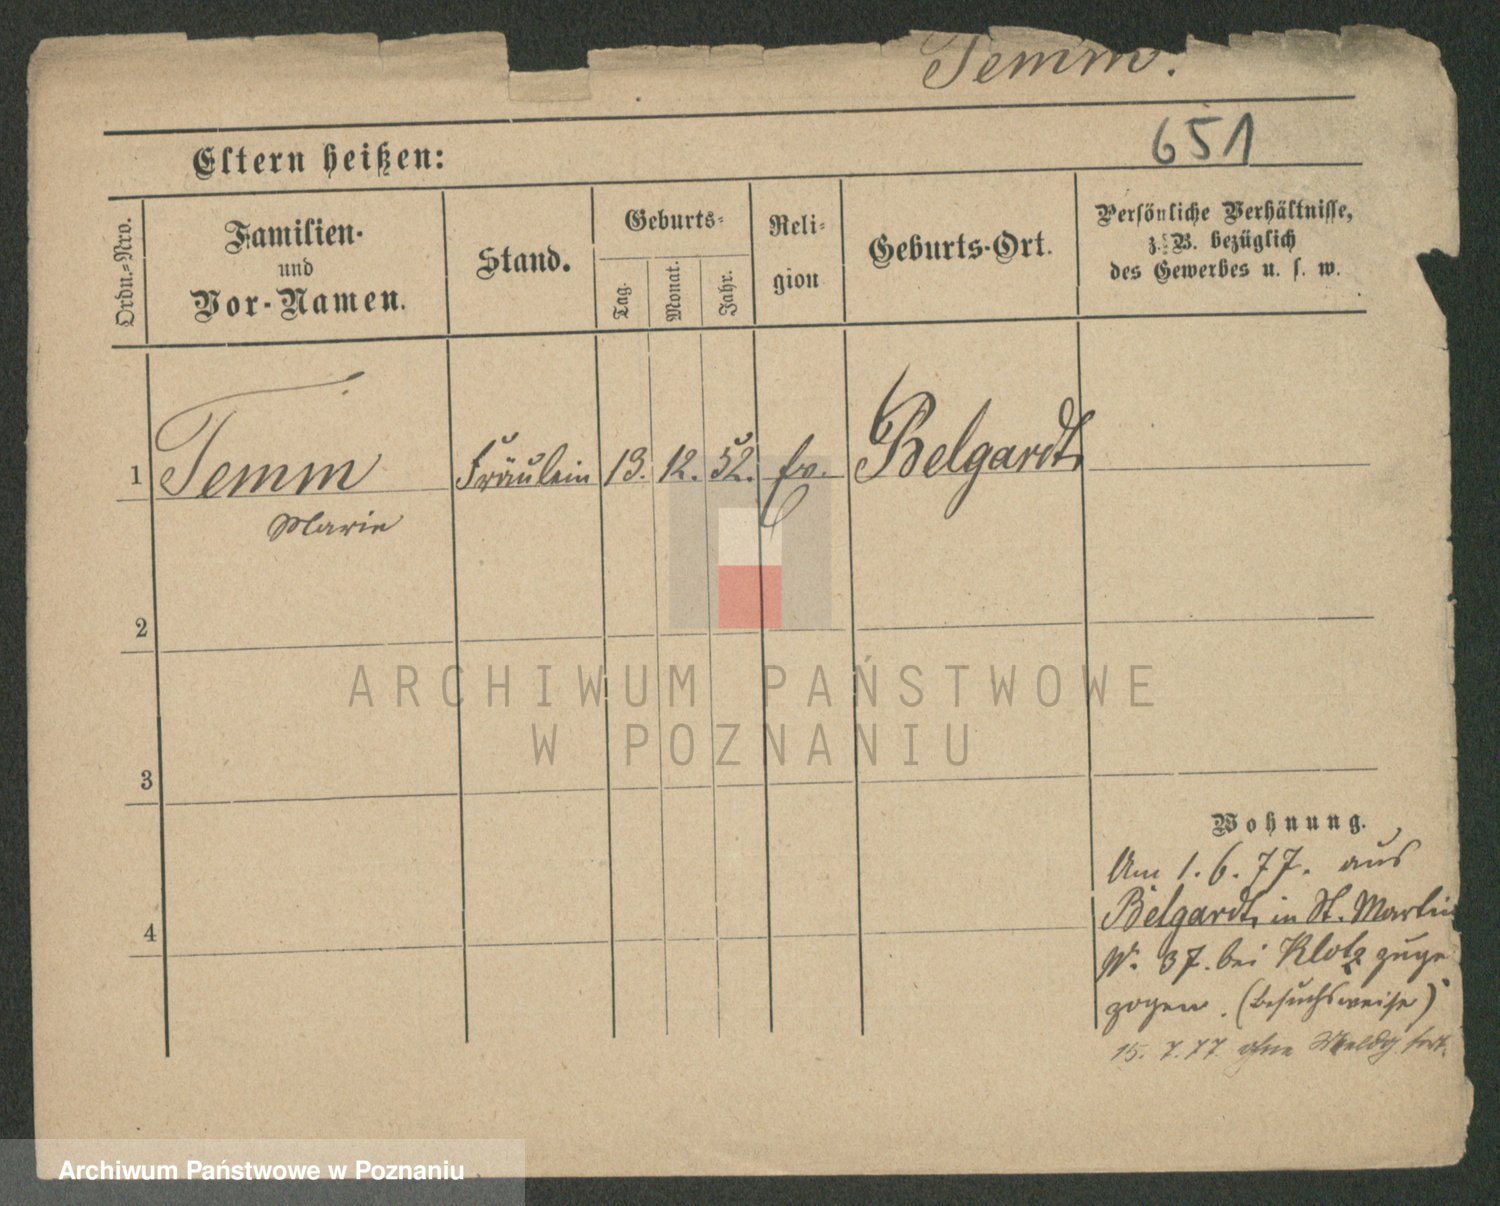 Temm.
651
Eltern heißen:
Ordn.-Nro.
Familien-
und
Vor-Namen.
Stand.
Geburts-
Tag.
Monat.
Jahr.
Reli-
gion
Geburts-Ort.
Persönliche Verhältnisse,
z. B. bezüglich
des Gewerbes u. s. w.
1 Temm Fräulein 13. 12. 52. ev. Belgardt
Marie
2
ARCHIWUM PAŃSTWOWE
W POZNANIU
3
Wohnung.
Am 1. 6. 77. aus
Belgardt, in St. Martin
4
N. 37. bei Klotz zuge
zogen. (besuchsweise)
15. 7. 77 ohne Meldg fort.
Archiwum Państwowe w Poznaniu